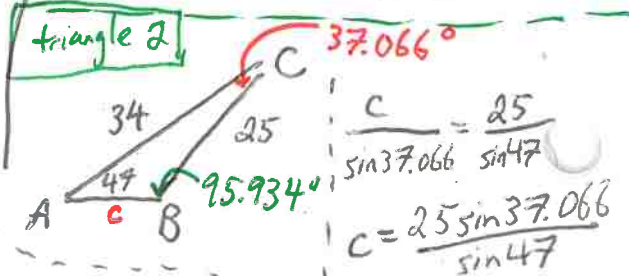 triangle 2
37.066°
C
34
25
47
95.934°
A
c
B
c/sin37.066 = 25/sin47
c = 25 sin37.066/sin47